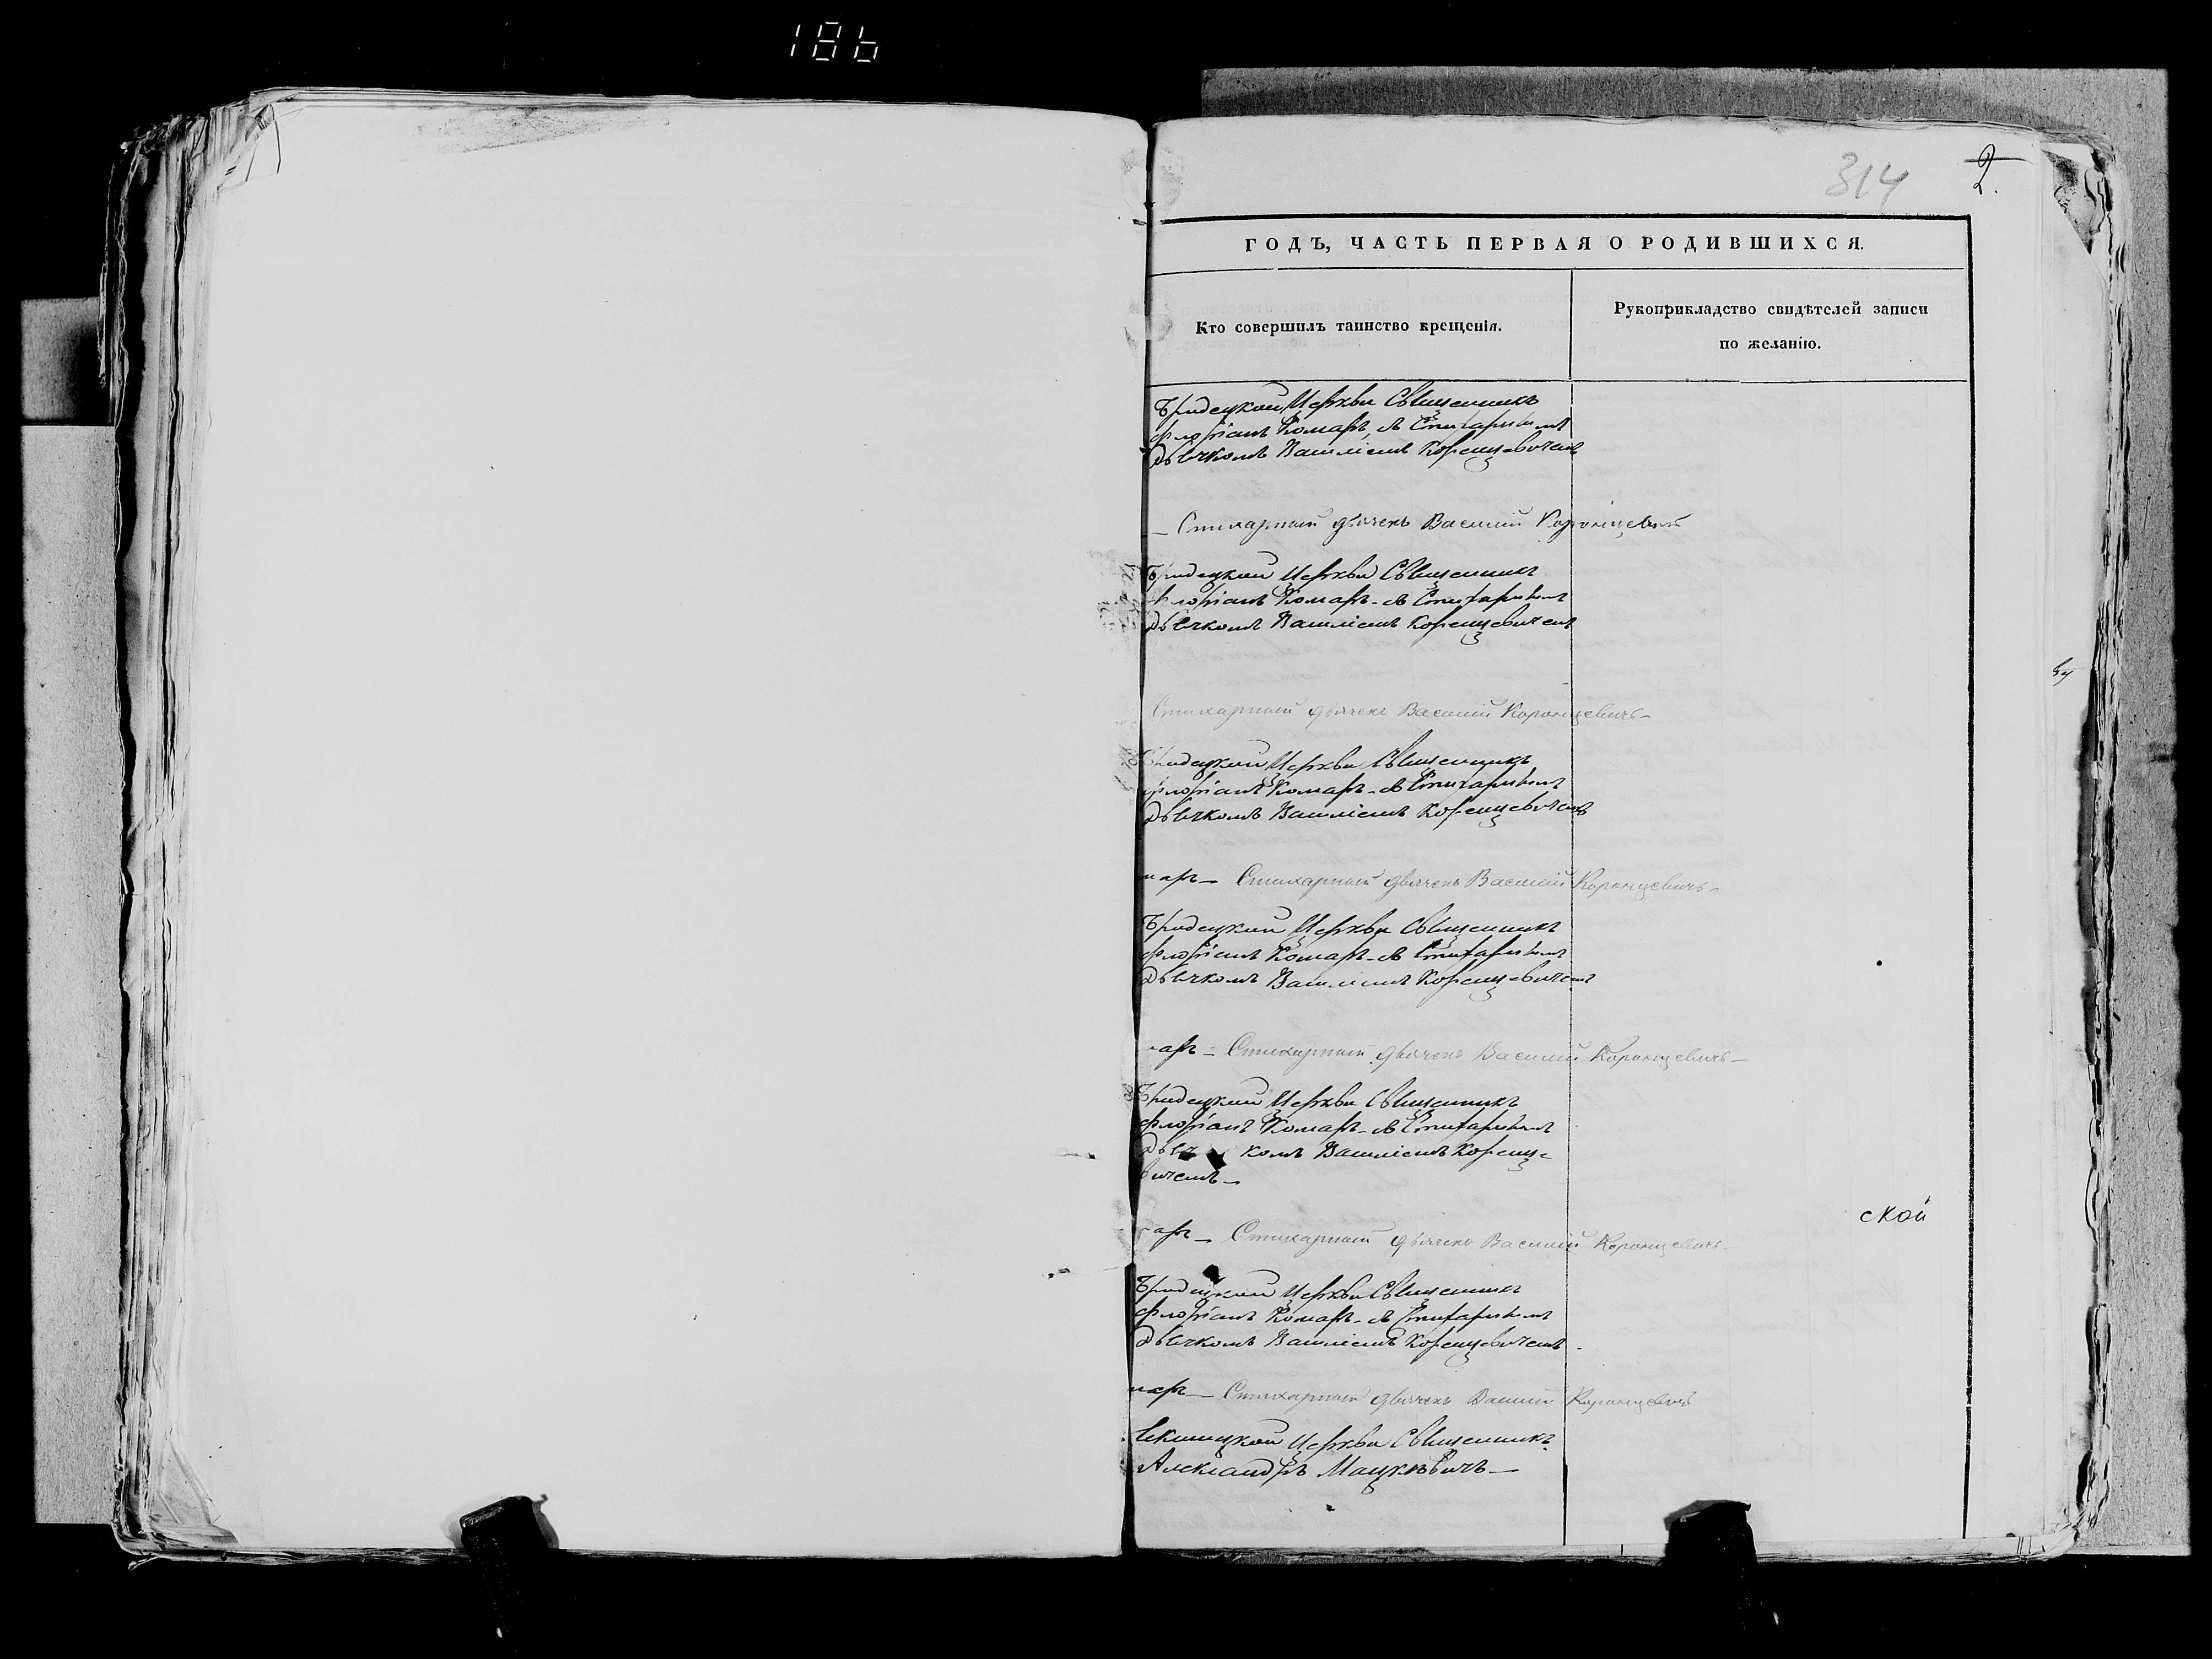 186
314
2.
ГОДЪ, ЧАСТЬ ПЕРВАЯ О РОДИВШИХСЯ.
Кто совершилъ таинство крещенія.
Рукоприкладство свидѣтелей записи
по желанію.
Бродецкой Церкви Священникъ
Флоріанъ Комаръ съ Стихарнымъ
Дьячкомъ Василіемъ Коренцевичемъ
— Стихарный дьячекъ Василий Коронцевичъ
Бродецкой Церкви Священникъ
Флоріанъ Комаръ - съ Стихарнымъ
Дьячкомъ Василіемъ Коренцевичемъ
Стихарный дьячекъ Василий Коронцевичъ —
Бродецкой Церкви Священникъ
Флоріанъ Комаръ - съ Стихарнымъ
Дьячкомъ Василіемъ Коренцевичемъ
маръ — Стихарный дьячекъ Василий Коронцевичъ —
Бродецкой Церкви Священникъ
Флоріанъ Комаръ - съ Стихарнымъ
Дьячкомъ Василіемъ Коренцевичемъ
аръ — Стихарный дьячекъ Василий Коронцевичъ —
Бродецкой Церкви Священникъ
Флоріанъ Комаръ - съ Стихарнымъ
Дьяч комъ Василіемъ Коренце
вичемъ —
ской
аръ — Стихарный дьячекъ Василий Коронцевичъ —
Бродецкой Церкви Священникъ
Флоріанъ Комаръ - съ Стихарнымъ
Дьячкомъ Василіемъ Коренцевичемъ
маръ — Стихарный дьячекъ Василий Коронцевичъ
Церкви Священникъ
Александръ Мацкѣвичъ —